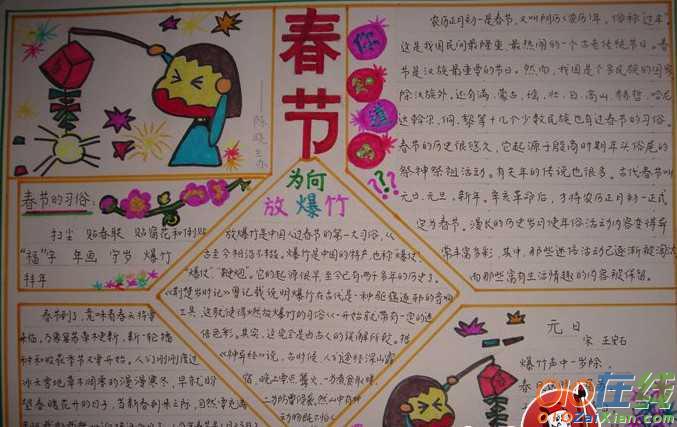 春节
陈晓兰办
你
知
道
???
农历正月初一是春节,又叫阴历(农历)年,俗称"过年"。
这是我国民间最隆重、最热闹的一个古老传统节日。春
节是汉族最重要的节日。然而,我国是个多民族的国家
除汉族外,还有满、蒙古、瑶、壮、白、高山、赫哲、哈尼
达斡尔、侗、黎等十几个少数民族也有过春节的习俗。
春节的历史很悠久,它起源于殷商时期年头岁尾的
祭神祭祖活动。有关年的传说也很多。古代春节叫
元日、元旦、新年。辛亥革命后,才将农历正月初一正式
定为春节。漫长的历史岁月使年俗活动内容变得异
常丰富多彩,其中,那些迷信活动已逐渐被淘汰
而那些富有生活情趣的内容被保留。
春节的习俗:
扫尘 贴春联 贴窗花和倒贴
"福"字 年画 守岁 爆竹
拜年
为何
放爆竹
放爆竹是中国人过春节的第一大习俗,从
古至今相沿不移。爆竹是中国的特产,也称"爆仗"、
"炮仗"、"鞭炮"。它的起源很早,至今已有两千多年的历史了。
《荆楚岁时记》曾记载说明爆竹在古代是一种驱瘟逐邪的音响
工具,这就使得燃放爆竹的习俗从一开始就带有一定的迷
信色彩。其实,这完全是由古人的误解所致。据
《神异经》说,古时候,人们途经深山露
宿,晚上要点篝火,一为煮食取暖
二为防野兽侵袭。然山中有种
动物既不怕人
春节到了,意味着春天将要
来临,万象复苏草木更新,新一轮播
种和收获季节又要开始。人们刚刚度过
冰天雪地草木凋零的漫漫寒冬,早就盼
望春暖花开的日子,当新春到来之际,自然要充满
元日
宋 王安石
爆竹声中一岁除,
春
OIO在线
OiOZaiXian.Com